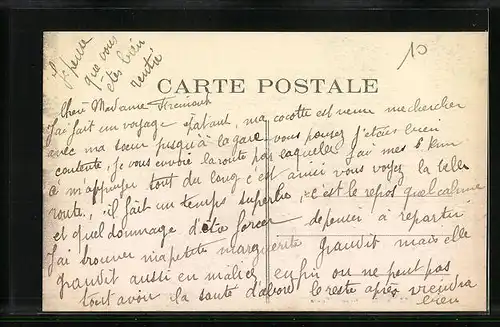 J'espère
que vous
êtes bien
rentré
10
CARTE POSTALE
Chère Madame
J'ai fait un voyage épatant, ma cocotte est venue me chercher
avec ma sœur jusqu'à la gare vous pensez j'étais bien
contente, je vous envoie la route par laquelle j'ai mes 6 km
à m'appuyer tout du long c'est ainsi vous voyez la belle
route, il fait un temps superbe, c'est le repos quel calme
et quel dommage d'être forcer de penser à repartir
J'ai trouver ma petite marguerite grandit mais elle
grandit aussi en malice enfin on ne peut pas
tout avoir la santé d'abord le reste après viendra
bien